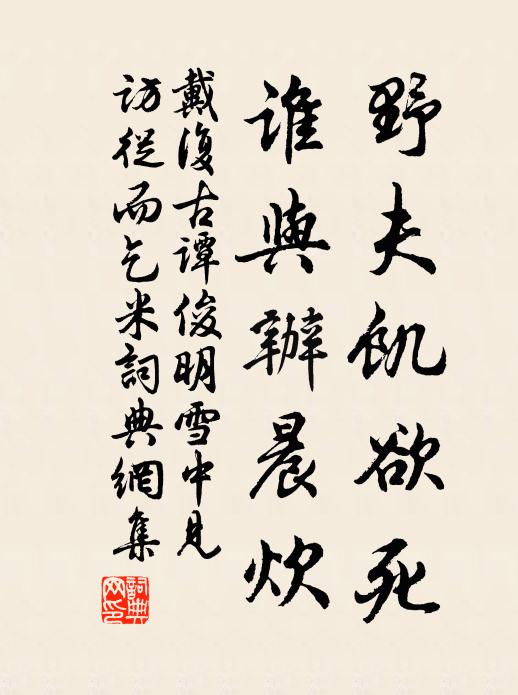 野夫飢欲死
誰與辦晨炊
戴復古譚俊明雪中見
訪從而乞米詞典網集
詞典
网印